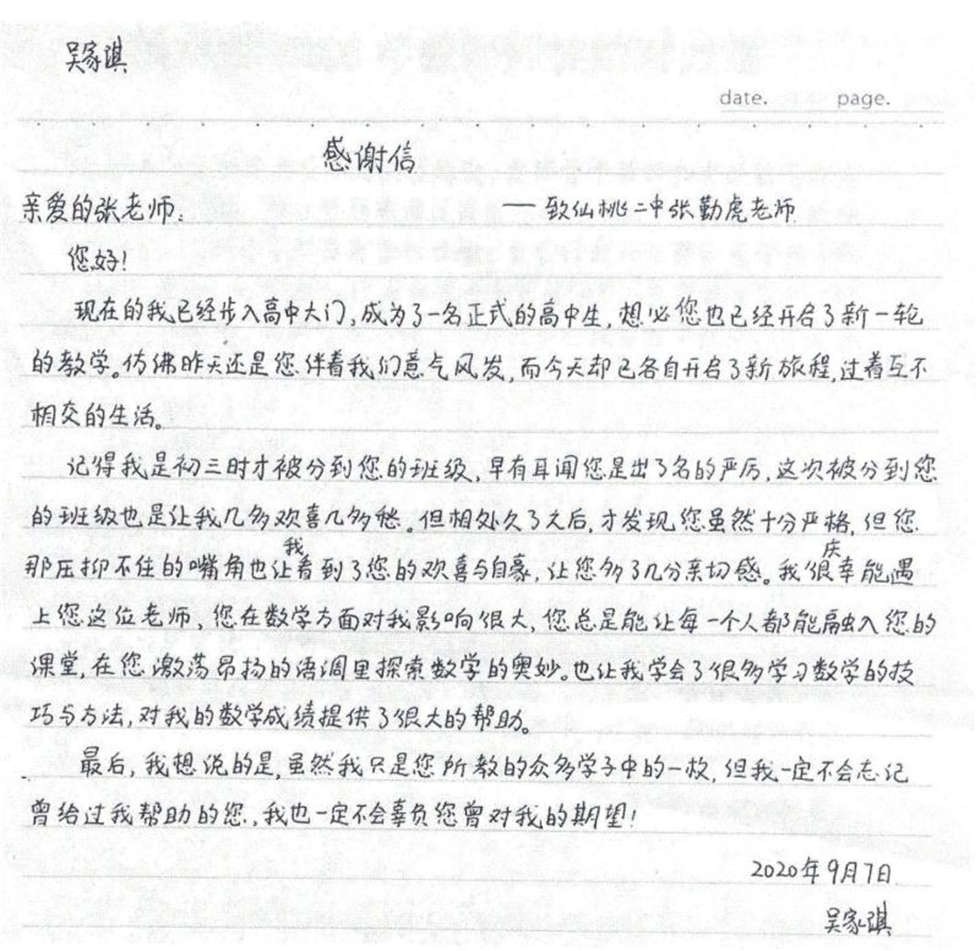 吴家淇
date. page.
感谢信
亲爱的张老师: ——致仙桃二中张勤虎老师
您好!
现在的我已经步入高中大门,成为了一名正式的高中生,想必您也已经开启了新一轮
的教学。仿佛昨天还是您伴着我们意气风发,而今天却已各自开启了新旅程,过着互不
相交的生活。
记得我是初三时才被分到您的班级,早有耳闻您是出了名的严厉,这次被分到您
的班级也是让我几多欢喜几多愁。但相处久了之后,才发现您虽然十分严格,但您
那压抑不住的嘴角也让我看到了您的欢喜与自豪,让您多了几分亲切感。我很庆幸能遇
上您这位老师、您在数学方面对我影响很大,您总是能让每一个人都能融入您的
课堂,在您激荡昂扬的语调里探索数学的奥妙。也让我学会了很多学习数学的技
巧与方法,对我的数学成绩提供了很大的帮助。
最后,我想说的是,虽然我只是您所教的众多学子中的一枚,但我一定不会忘记
曾给过我帮助的您,我也一定不会辜负您曾对我的期望!
2020年9月7日
吴家淇